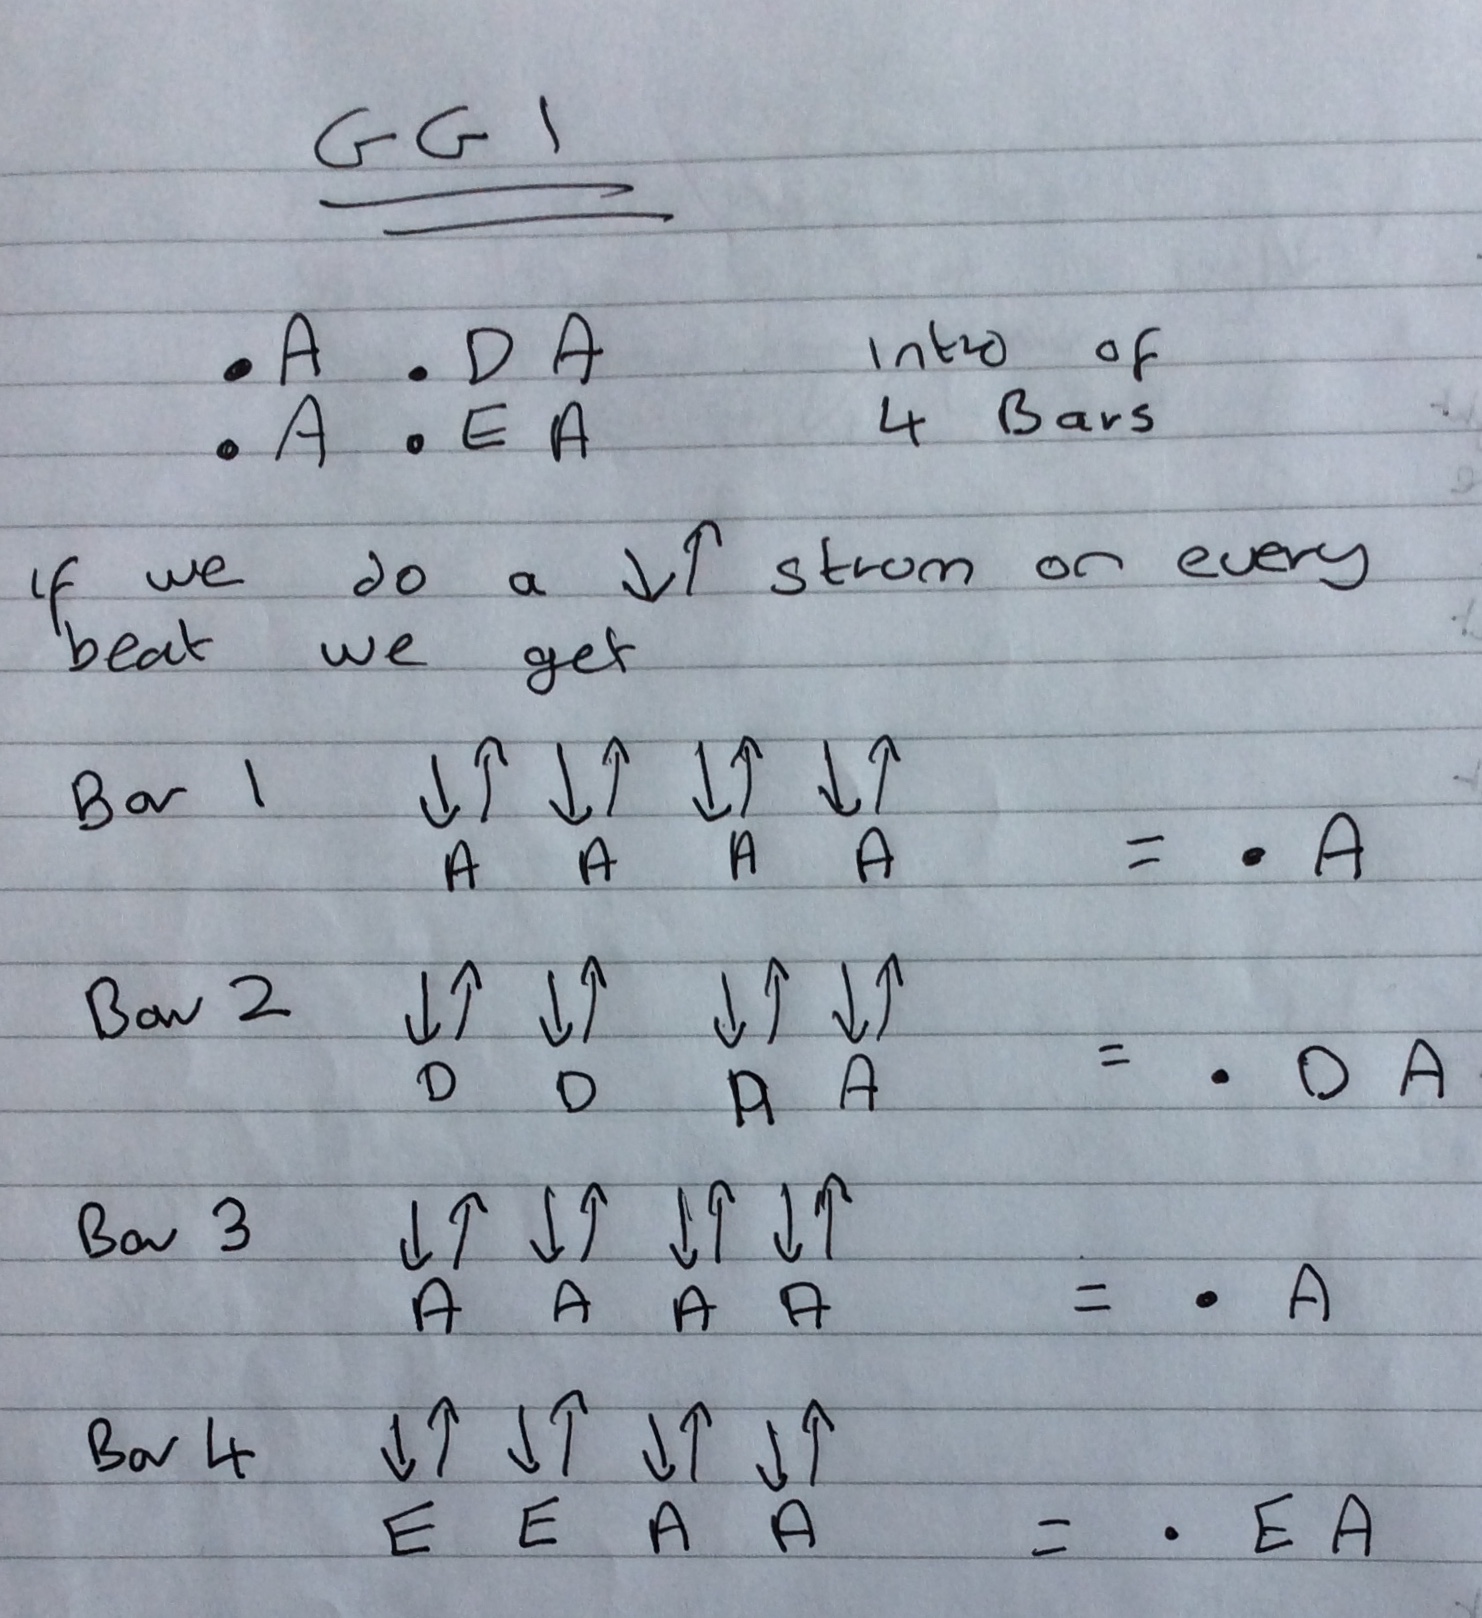 GG1
• A • D A Intro of
• A • E A 4 Bars
If we do a ↓↑ strum on every
beat we get
Bar 1 ↓↑ ↓↑ ↓↑ ↓↑
A A A A = • A
Bar 2 ↓↑ ↓↑ ↓↑ ↓↑
D D A A = • D A
Bar 3 ↓↑ ↓↑ ↓↑ ↓↑
A A A A = • A
Bar 4 ↓↑ ↓↑ ↓↑ ↓↑
E E A A = • E A